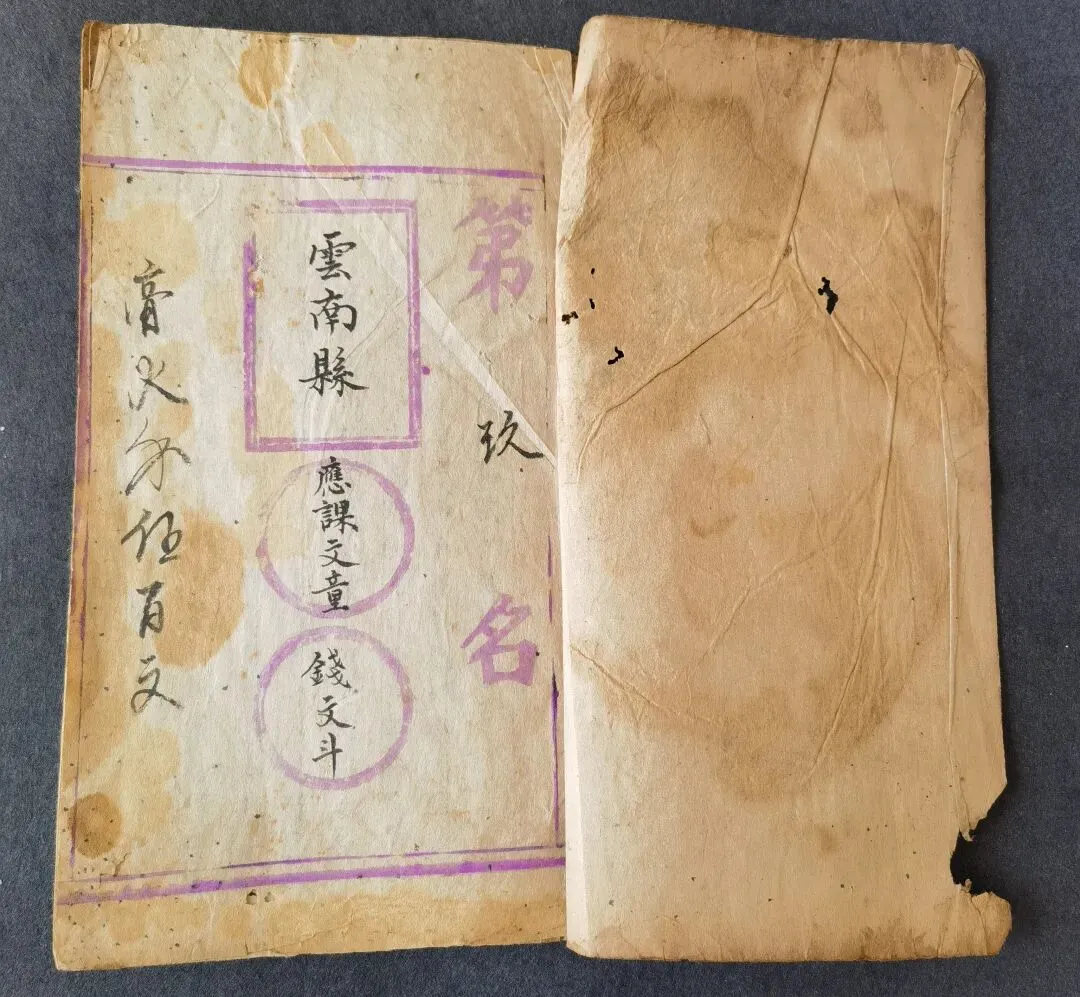 第玖名
雲南縣
應課文童
錢文斗
膏火伍百文